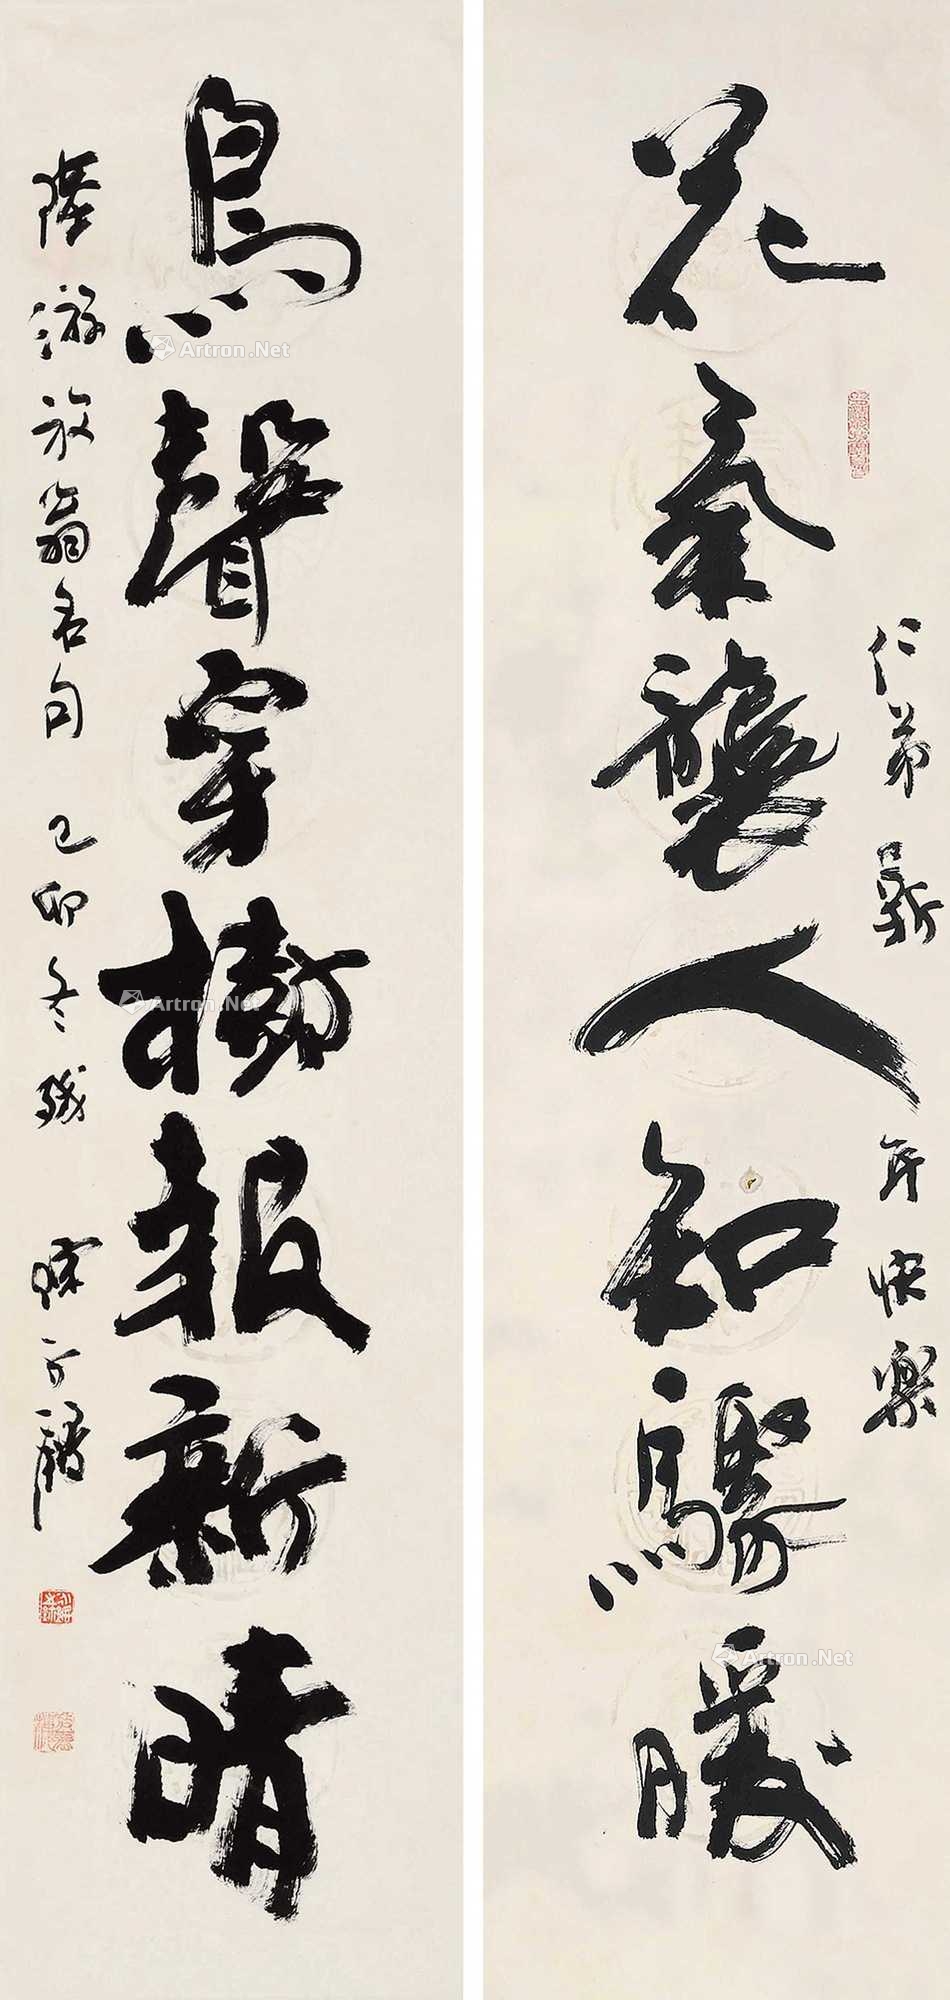 花氣襲人知驟暖
仁弟 新年快樂
鳥聲穿樹報新晴
陸游放翁名句 己卯冬殘
Artron.Net
Artron.Net
Artron.Net